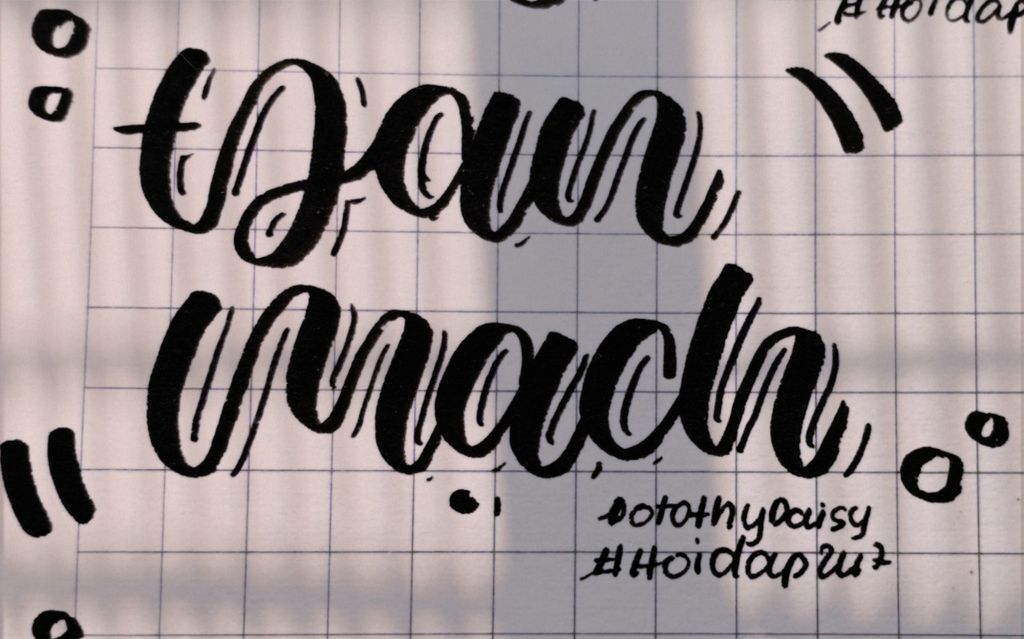 #Hoidap
Đan
Mạch
DotothyDaisy
#Hoidap247